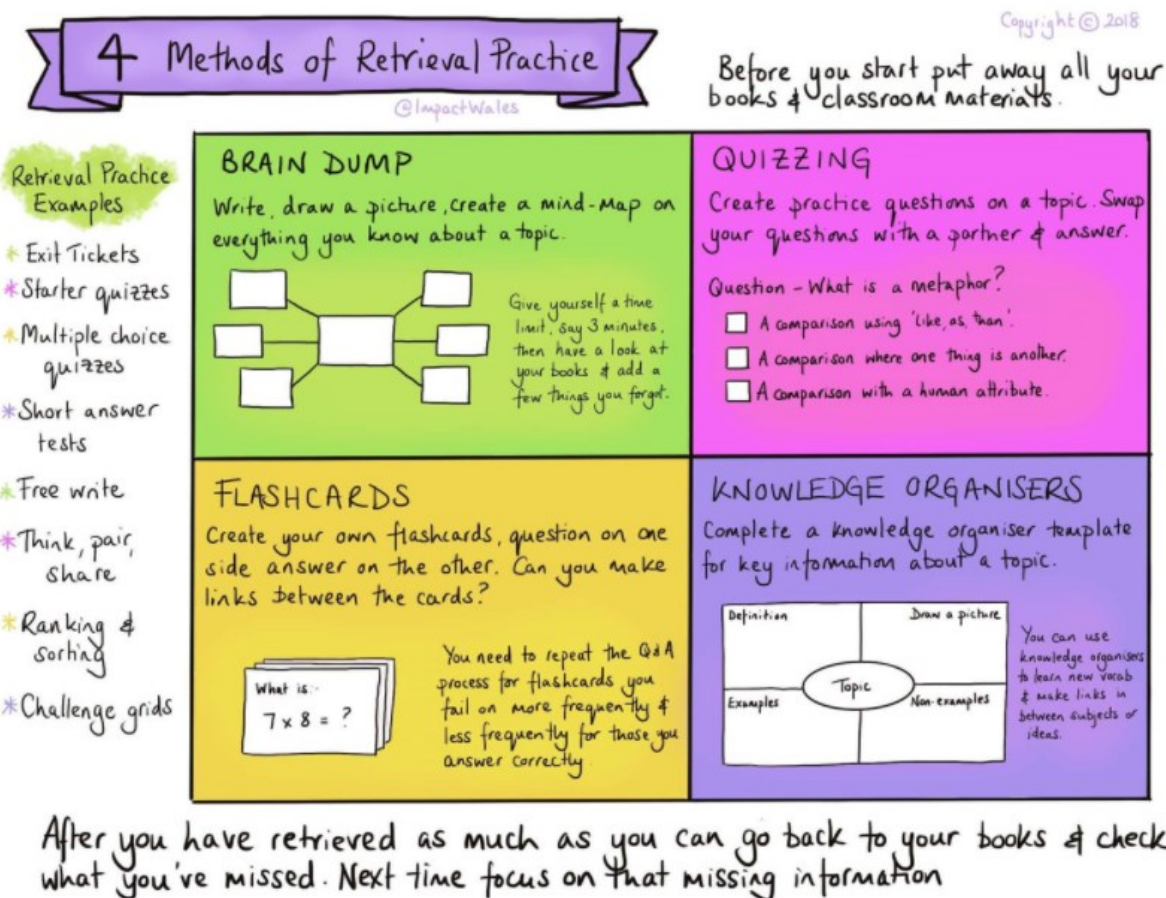 Copyright © 2018
4 Methods of Retrieval Practice
@ImpactWales
Before you start put away all your
books & classroom materials.
Retrieval Practice
Examples
* Exit Tickets
* Starter quizzes
* Multiple choice
quizzes
* Short answer
tests
* Free write
* Think, pair,
share
* Ranking &
sorting
* Challenge grids
BRAIN DUMP
Write, draw a picture, create a mind-map on
everything you know about a topic.
Give yourself a time
limit, say 3 minutes,
then have a look at
your books & add a
few things you forgot.
QUIZZING
Create practice questions on a topic. Swap
your questions with a partner & answer.
Question - What is a metaphor?
A comparison using 'like, as, than'.
A comparison where one thing is another.
A comparison with a human attribute.
FLASHCARDS
Create your own flashcards, question on one
side answer on the other. Can you make
links between the cards?
What is:-
7 x 8 = ?
You need to repeat the Q&A
process for flashcards you
fail on more frequently &
less frequently for those you
answer correctly
KNOWLEDGE ORGANISERS
Complete a knowledge organiser template
for key information about a topic.
Definition
Draw a picture
Topic
Examples
Non-examples
You can use
knowledge organisers
to learn new vocab
& make links in
between subjects or
ideas.
After you have retrieved as much as you can go back to your books & check
what you've missed. Next time focus on that missing information